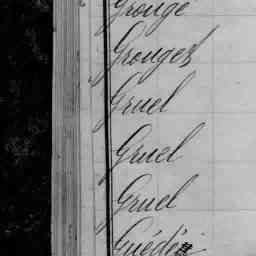 Grouge
Grouges
Gruel
Gruel
Gruel